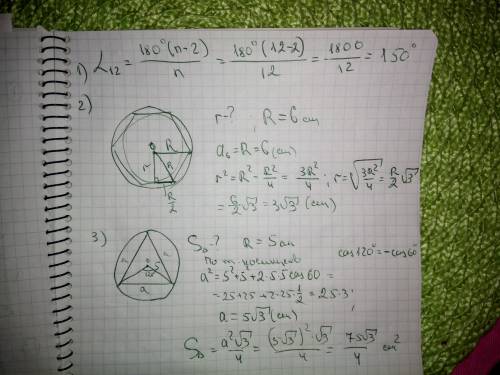 1) α₁₂ = 180°(n-2)/n = 180°(12-2)/12 = 1800/12 = 150°
2)
r-? ; R = 6 см
a₆ = R = 6 (см)
r² = R² - R²/4 = 3R²/4 ; r = √(3R²/4) = R/2 √3
= 6/2 √3 = 3√3 (см)
R
r
R
R/2
3)
S△ ? R = 5 см
По т. косинусов
cos120° = -cos60°
a² = 5² + 5² + 2·5·5 cos60 =
= 25+25+2·25·1/2 = 25·3 ;
a = 5√3 (см)
a
S△ = a²√3/4 = (5√3)²·√3/4 = 75√3/4 см²